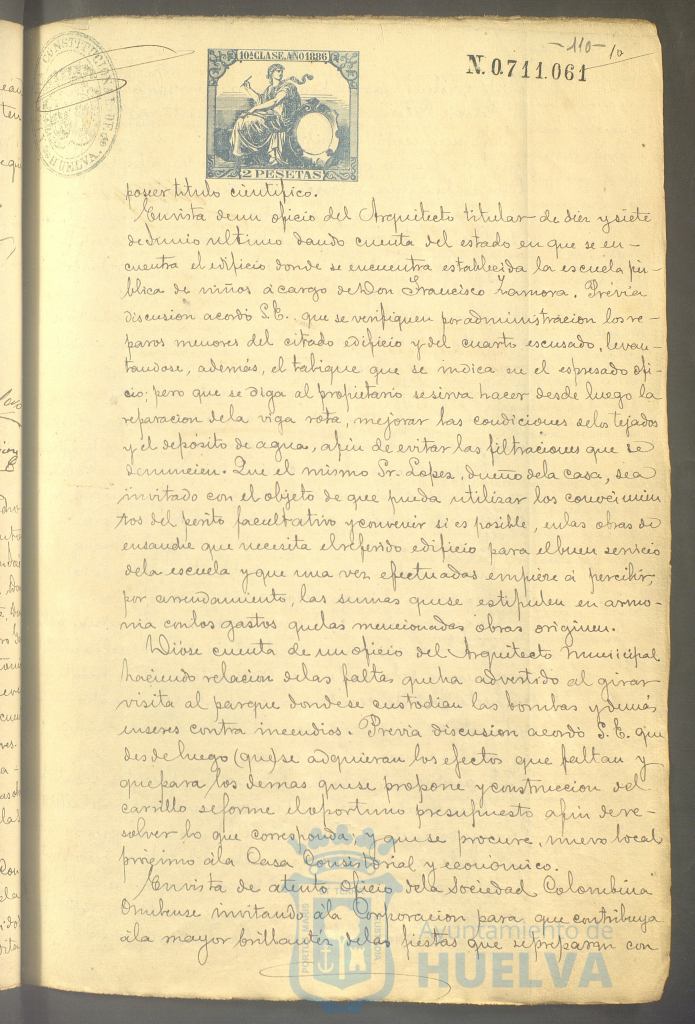 -110-
10
N. 0.711.061
10ª CLASE. AÑO 1886
2 PESETAS
HUELVA.
poseer titulo cientifico.
En vista de un oficio del Arquitecto titular de diez y siete
de Junio ultimo dando cuenta del estado en que se en-
cuentra el edificio donde se encuentra establecida la escuela pú-
blica de niños á cargo de Don Francisco Zamora. Prévia
discusion acordó S.E. que se verifiquen por administracion los re-
paros menores del citado edificio y del cuarto escusado, levan-
tandose, además, el tabique que se indica en el espresado ofi-
cio; pero que se diga al propietario se sirva hacer desde luego la
reparacion de la viga rota, mejorar las condiciones de los tejados
y el depósito de agua, afin de evitar las filtraciones que se
denuncien. Que el mismo Sr. Lopez, dueño de la casa, sea
invitado con el objeto de que pueda utilizar los conocimien
tos del perito facultativo y convenir si es posible, en las obras de
ensanche que necesita el referido edificio para el buen servicio
de la escuela y que una vez efectuadas empiece á percibir,
por arrendamiento, las sumas que se estipulen en armo-
nia con los gastos que las mencionadas obras originen.
Dióse cuenta de un oficio del Arquitecto municipal
haciendo relacion de las faltas que ha advertido al girar
visita al parque donde se custodian las bombas y demás
enseres contra incendios. Prévia discusion acordó S.E. que
desde luego (que) se adquieran los efectos que faltan y
que para los demas que se propone y construccion del
carrillo se forme el oportuno presupuesto afin de re-
solver lo que corresponda; y que se procure, nuevo local
prógimo á la Casa Consistorial y económico.
En vista de atento oficio de la Sociedad Colombina
Onubense invitando á la Corporacion para que contribuya
á la mayor brillantéz de las fiestas que se preparan con
Ayuntamiento de
HUELVA